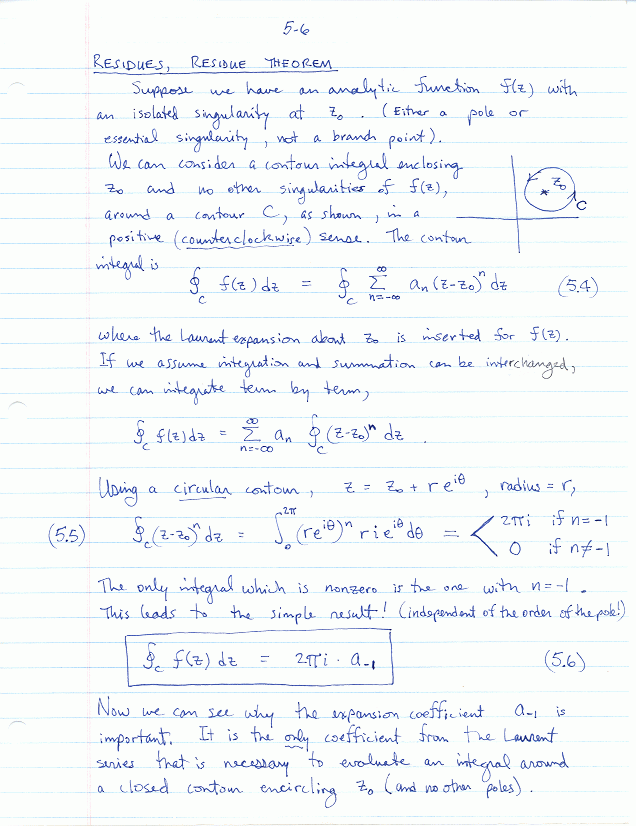 5-6
RESIDUES, RESIDUE THEOREM
Suppose we have an analytic function f(z) with
an isolated singularity at z₀. (Either a pole or
essential singularity, not a branch point).
We can consider a contour integral enclosing
z₀ and no other singularities of f(z),
around a contour C, as shown, in a
positive (counterclockwise) sense. The contour
integral is
z₀
C
∮_C f(z) dz = ∮_C Σ_{n=-∞}^{∞} aₙ (z-z₀)ⁿ dz (5.4)
where the Laurent expansion about z₀ is inserted for f(z).
If we assume integration and summation can be interchanged,
we can integrate term by term,
∮_C f(z) dz = Σ_{n=-∞}^{∞} aₙ ∮_C (z-z₀)ⁿ dz .
Using a circular contour, z = z₀ + r e^{iθ}, radius = r,
(5.5) ∮_C (z-z₀)ⁿ dz = ∫₀^{2π} (re^{iθ})ⁿ r i e^{iθ} dθ = < 2πi if n=-1
0 if n≠-1
The only integral which is nonzero is the one with n=-1.
This leads to the simple result! (independent of the order of the pole!)
∮_C f(z) dz = 2πi · a₋₁ (5.6)
Now we can see why the expansion coefficient a₋₁ is
important. It is the only coefficient from the Laurent
series that is necessary to evaluate an integral around
a closed contour encircling z₀ (and no other poles).